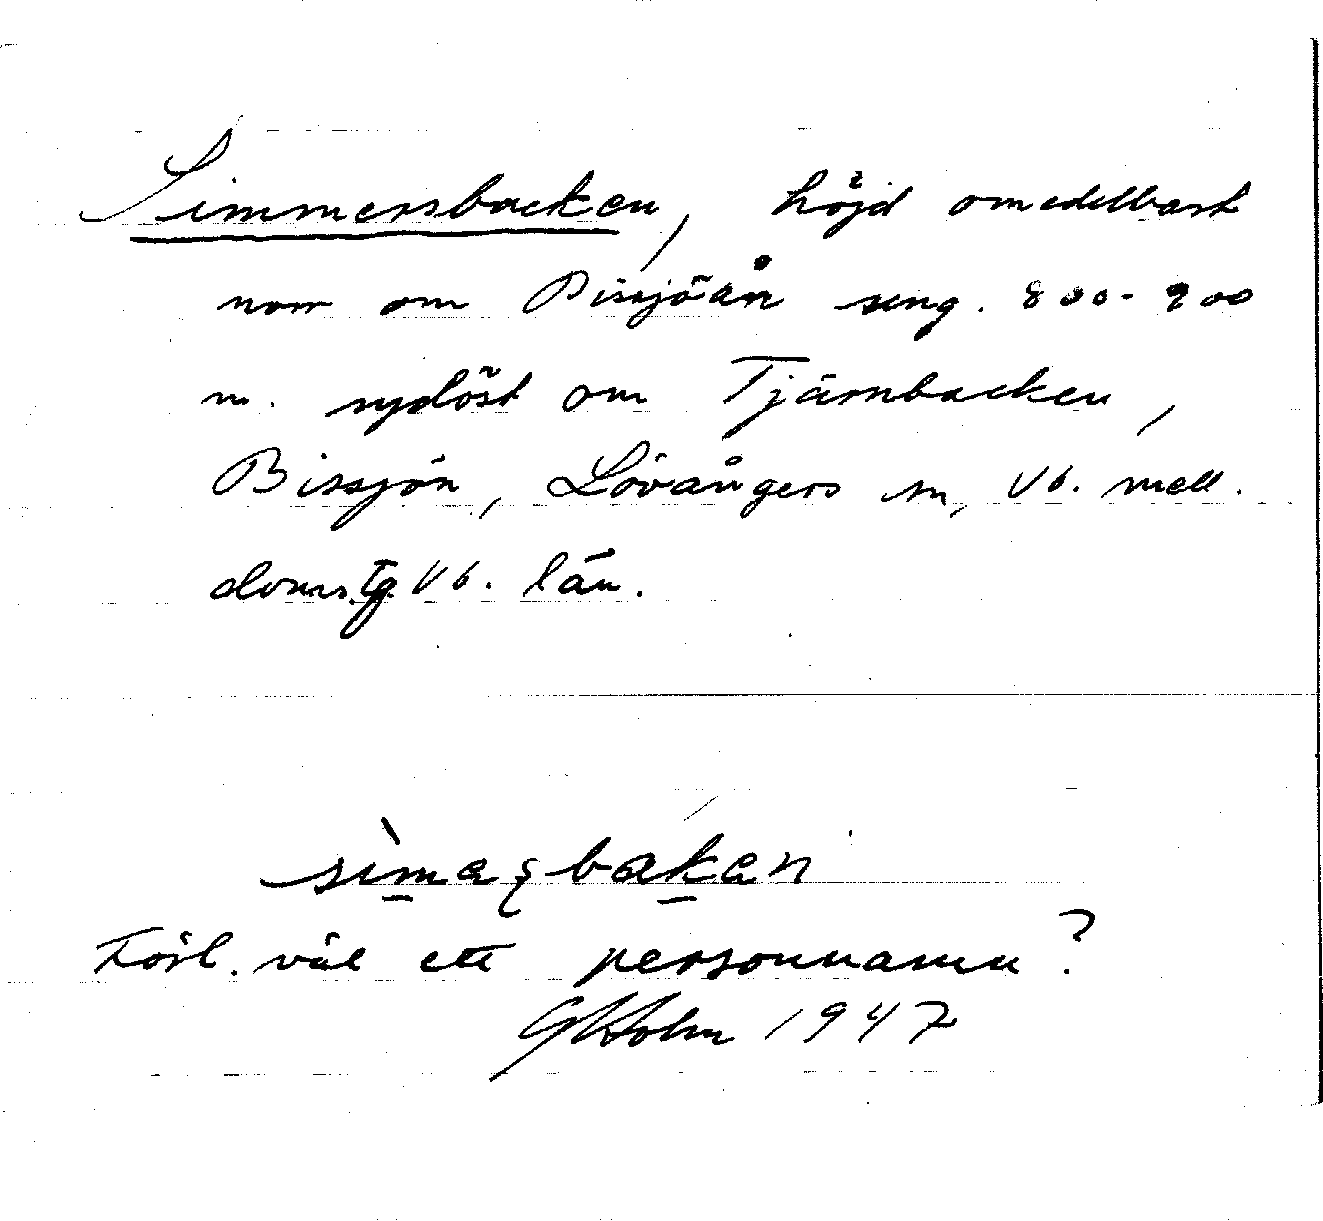 Simmersbacken, höjd omedelbart
norr om Bissjöån ung. 800-900
m. sydöst om Tjärnbacken,
Bissjön, Lövångers sn, Vb. mell.
doms.tg. Vb. län.
sìmaʂbakan
Förl. väl ett personnamn?
G Holm 1947